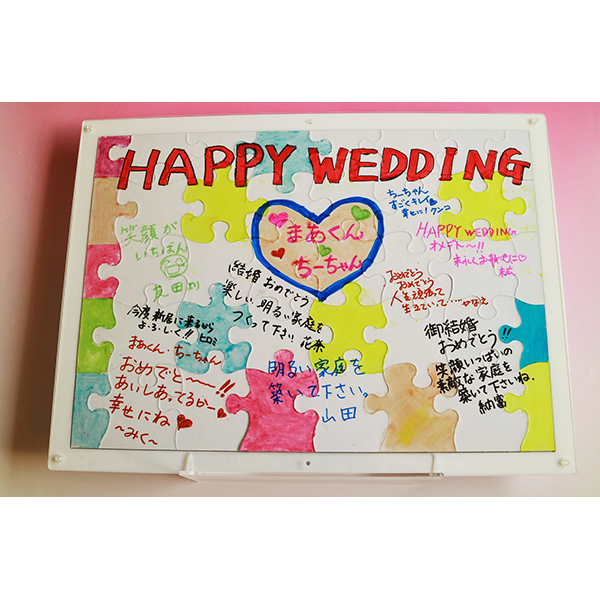 HAPPY WEDDING
まあくん
ちーちゃん
ちーちゃん
すごくキレイ
幸せに!クンコ
HAPPY WEDDING
オメデトー!!
笑顔が
いちばん
友田より
結婚おめでとう
楽しい明るい家庭を
つくって下さい 花奈
おめでとう
おめでとう
人生頑張って
生きていて…やなえ
今度新居に来るから
よ・ろ・し・く!! ヒロミ
まあくん・ちーちゃん
おめでと〜〜!!
あいしあってるか〜
幸せにね
〜みく〜
明るい家庭を
築いて下さい。
山田
御結婚
おめでとう!!
笑顔いっぱいの
素敵な家庭を
築いて下さいね.
納富